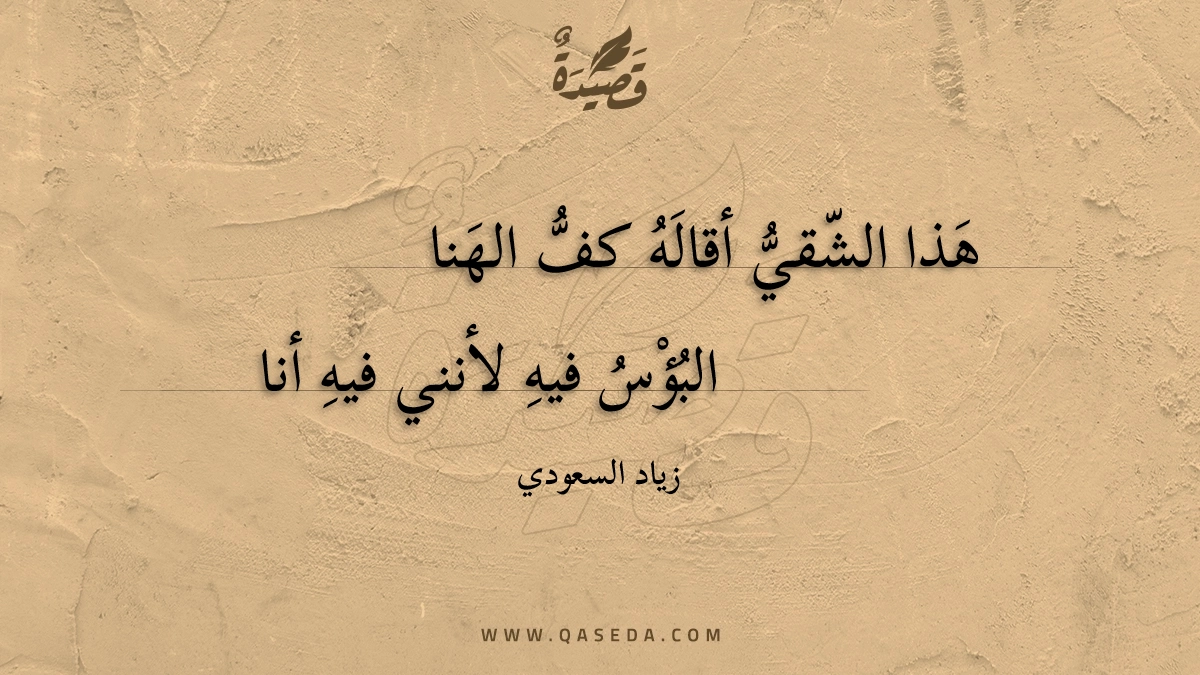 قَصِيَدَةٌ
هَذا الشّقيُّ أقالَهُ كفُّ الهَنا
البُؤْسُ فيهِ لأنني فيهِ أنا
زياد السعودي
WWW.QASEDA.COM